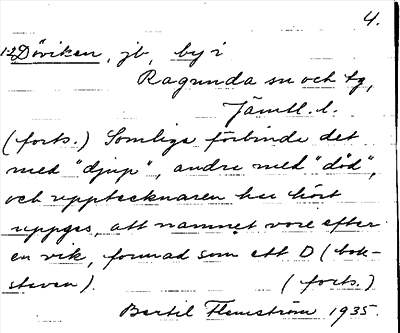 4.
1-2 Döviken, jb, by i
Ragunda sn och tg,
Jämtl. l.
(forts.) Somliga förbinda det
med "djup", andra med "död",
och upptecknaren har hört
uppges, att namnet vore efter
en vik, formad som ett D (bok-
staven). (forts.)
Bertil Flemström 1935.